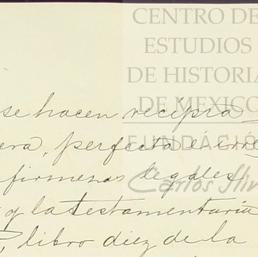 CENTRO DE
ESTUDIOS
DE HISTORIA
DE MEXICO
se hacen recipro
era, perfecta e irre
FUNDACIÓ
firmenas legales
Carlos
y la testamentaria
libro diez de la